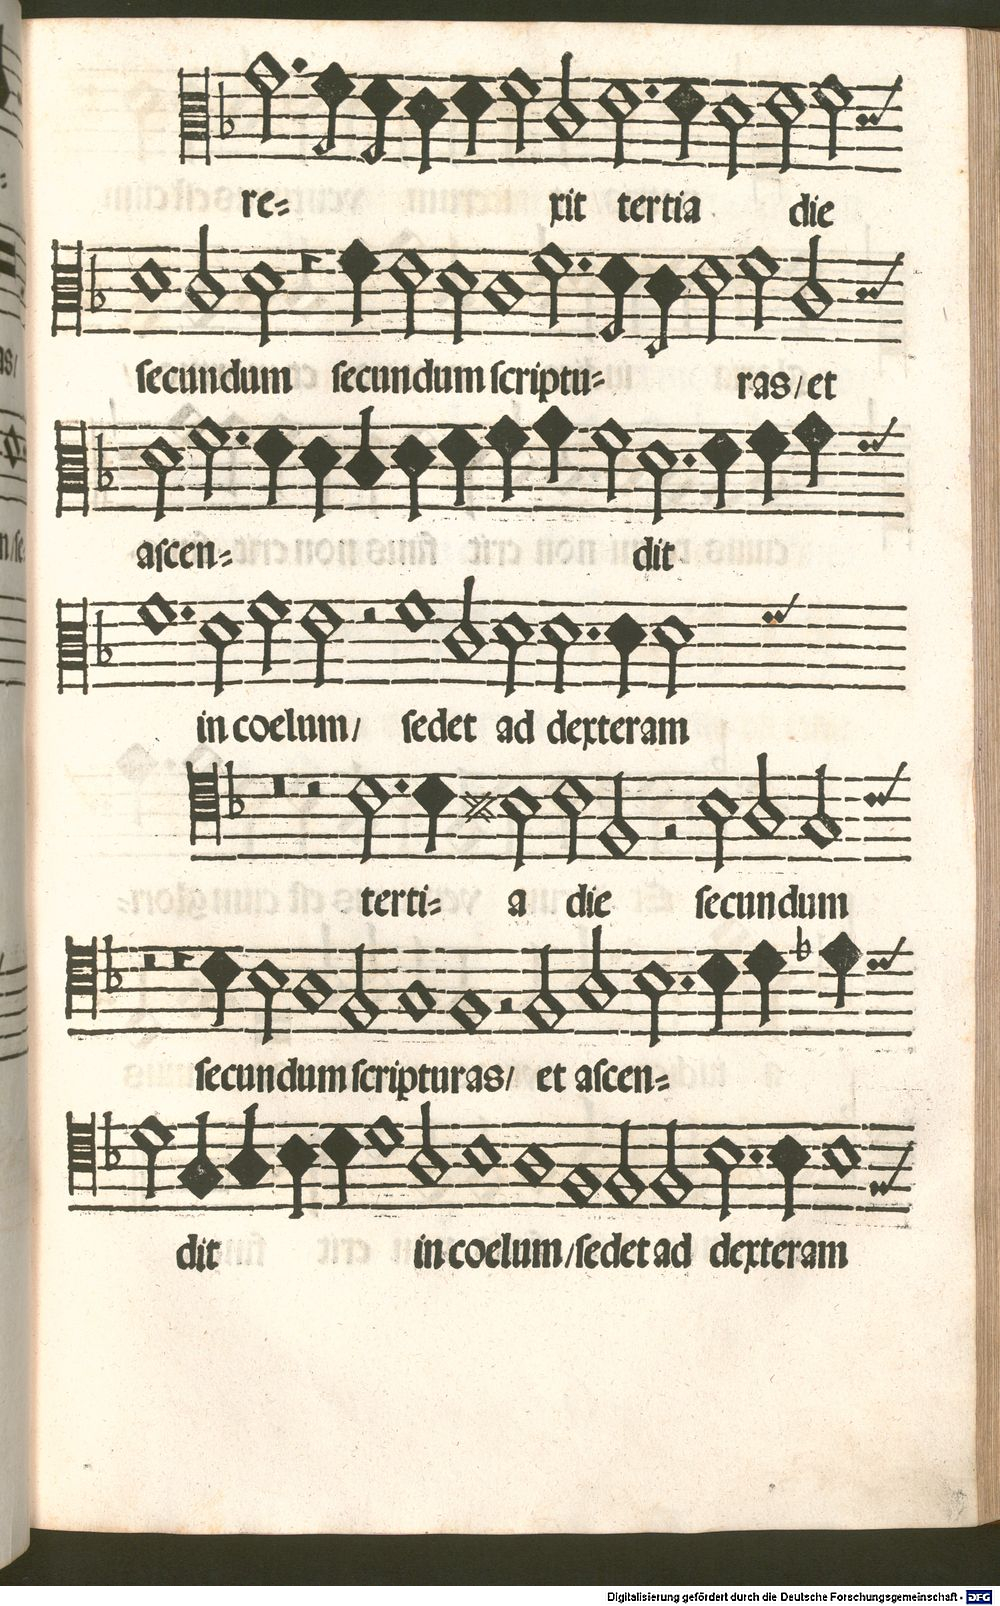 re= xit tertia die
secundum secundum scriptu= ras/et
ascen= dit
in coelum/ sedet ad dexteram
terti= a die secundum
secundum scripturas/ et ascen=
dit in coelum/sedet ad dexteram
Digitalisierung gefördert durch die Deutsche Forschungsgemeinschaft - DFG